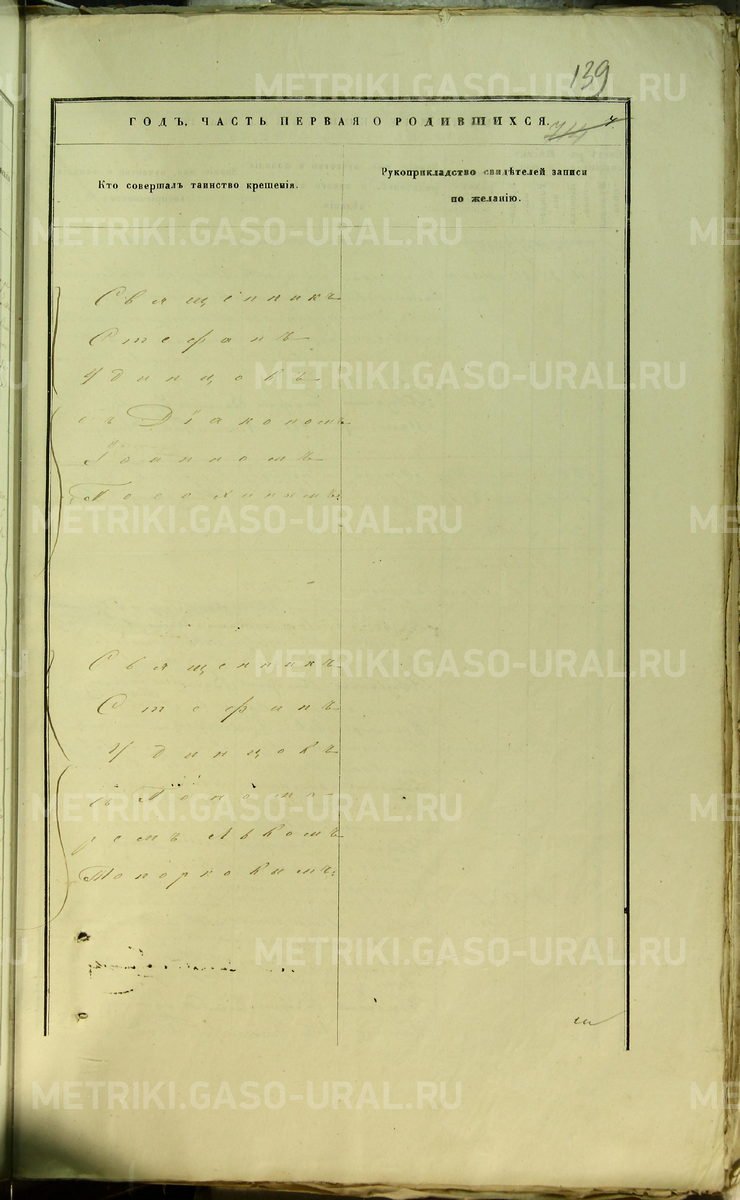 139
ГОДЪ, ЧАСТЬ ПЕРВАЯ О РОДИВШИХСЯ.
74
Кто совершалъ таинство крещенія.
Рукоприкладство свидѣтелей записи
по желанію.
Священникъ
Стефанъ
Удинцовъ
съ Діакономъ
Іоанномъ
Священникъ
Стефанъ
Удинцовъ
съ Понома-
ремъ Львомъ
Топорковымъ.
METRIKI.GASO-URAL.RU